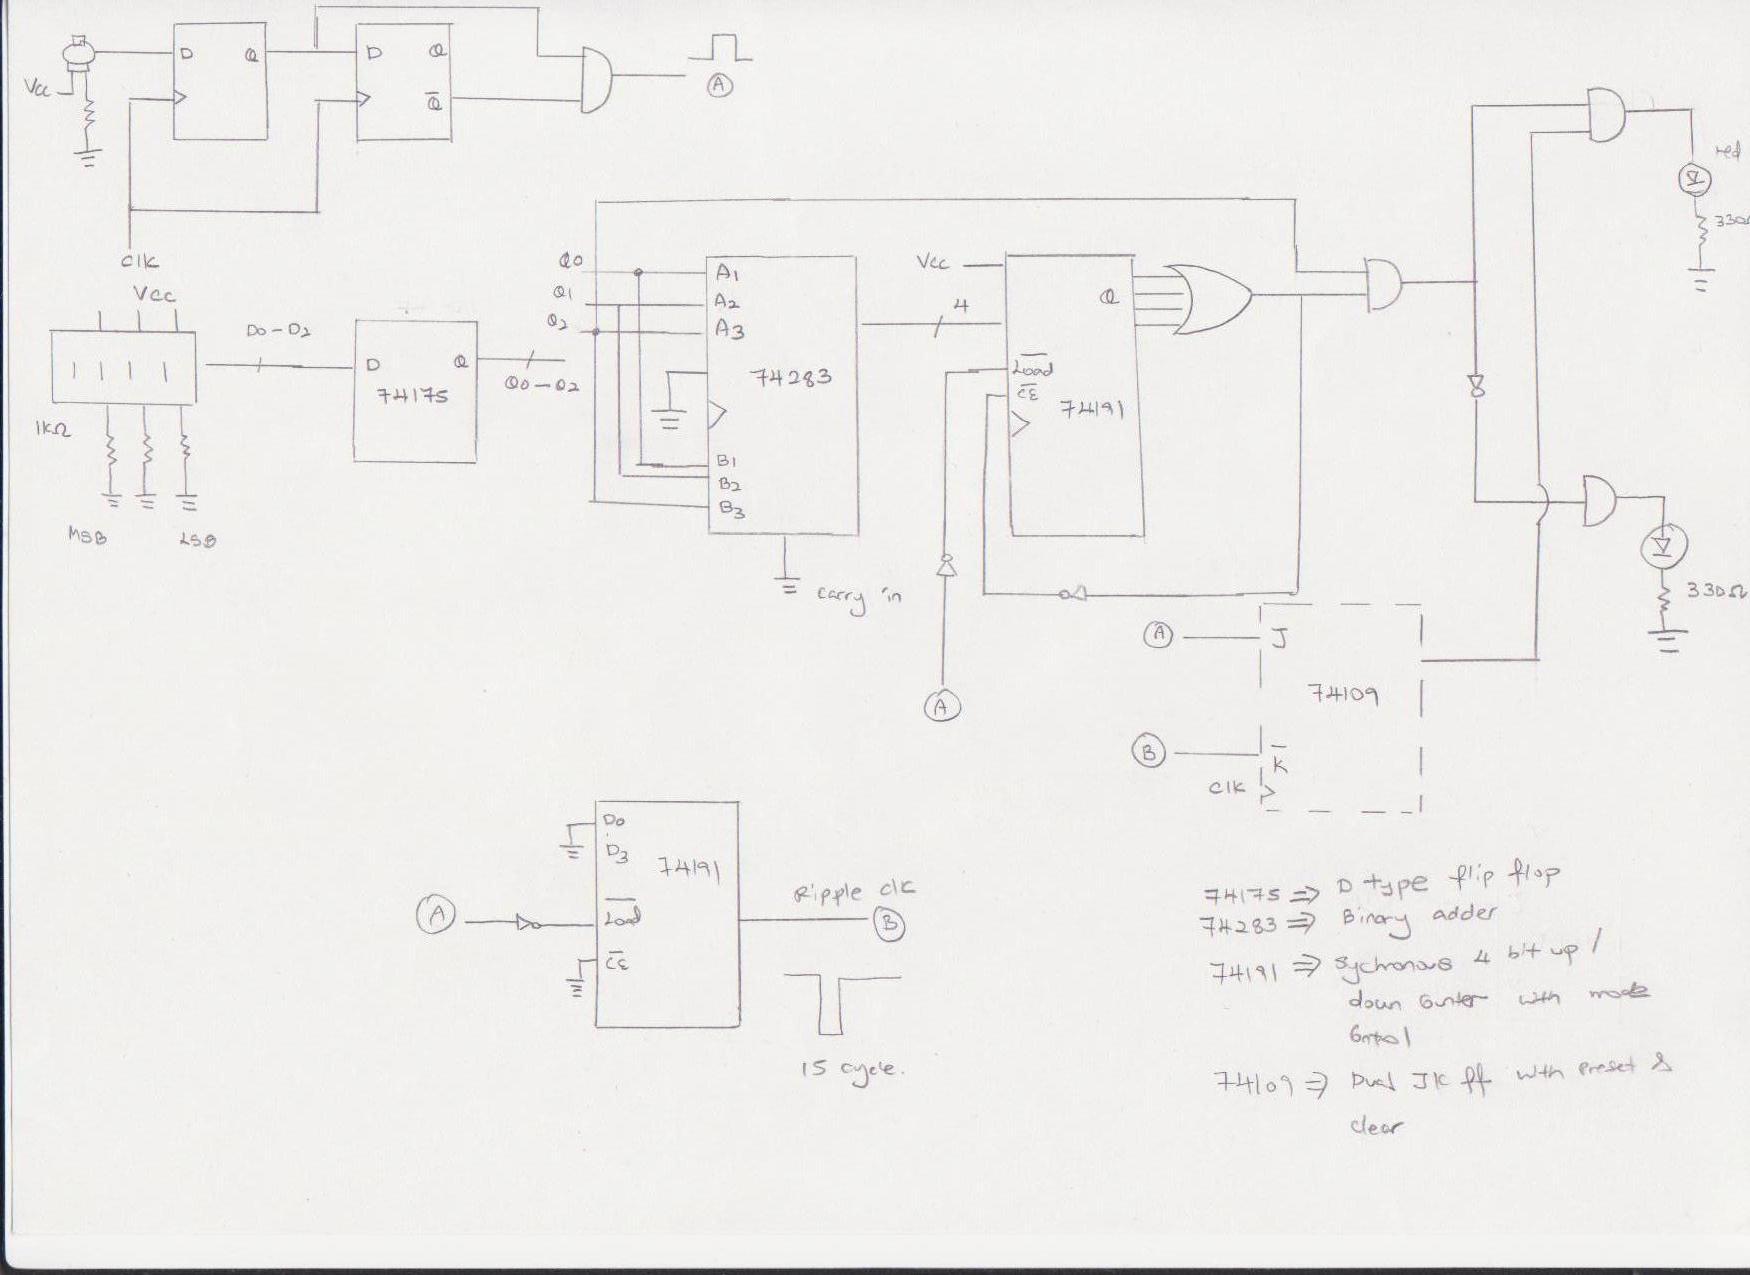 D Q
D Q
Q̅
Vcc
A
Clk
Vcc
D0-D2
D Q
74175
Q0-Q2
1kΩ
MSB LSB
Q0
Q1
Q2
A1
A2
A3
74283
B1
B2
B3
carry in
Vcc
4
Q
L̅o̅a̅d̅
C̅E̅
74191
A
red
330Ω
330Ω
A J
74109
B K̅
Clk
D0
D3
74191
A L̅o̅a̅d̅
C̅E̅
Ripple clk
B
15 cycle.
74175 ⇒ D type flip flop
74283 ⇒ Binary adder
74191 ⇒ Sychronous 4 bit up /
down counter with mode
control
74109 ⇒ Dual JK ff with preset &
clear